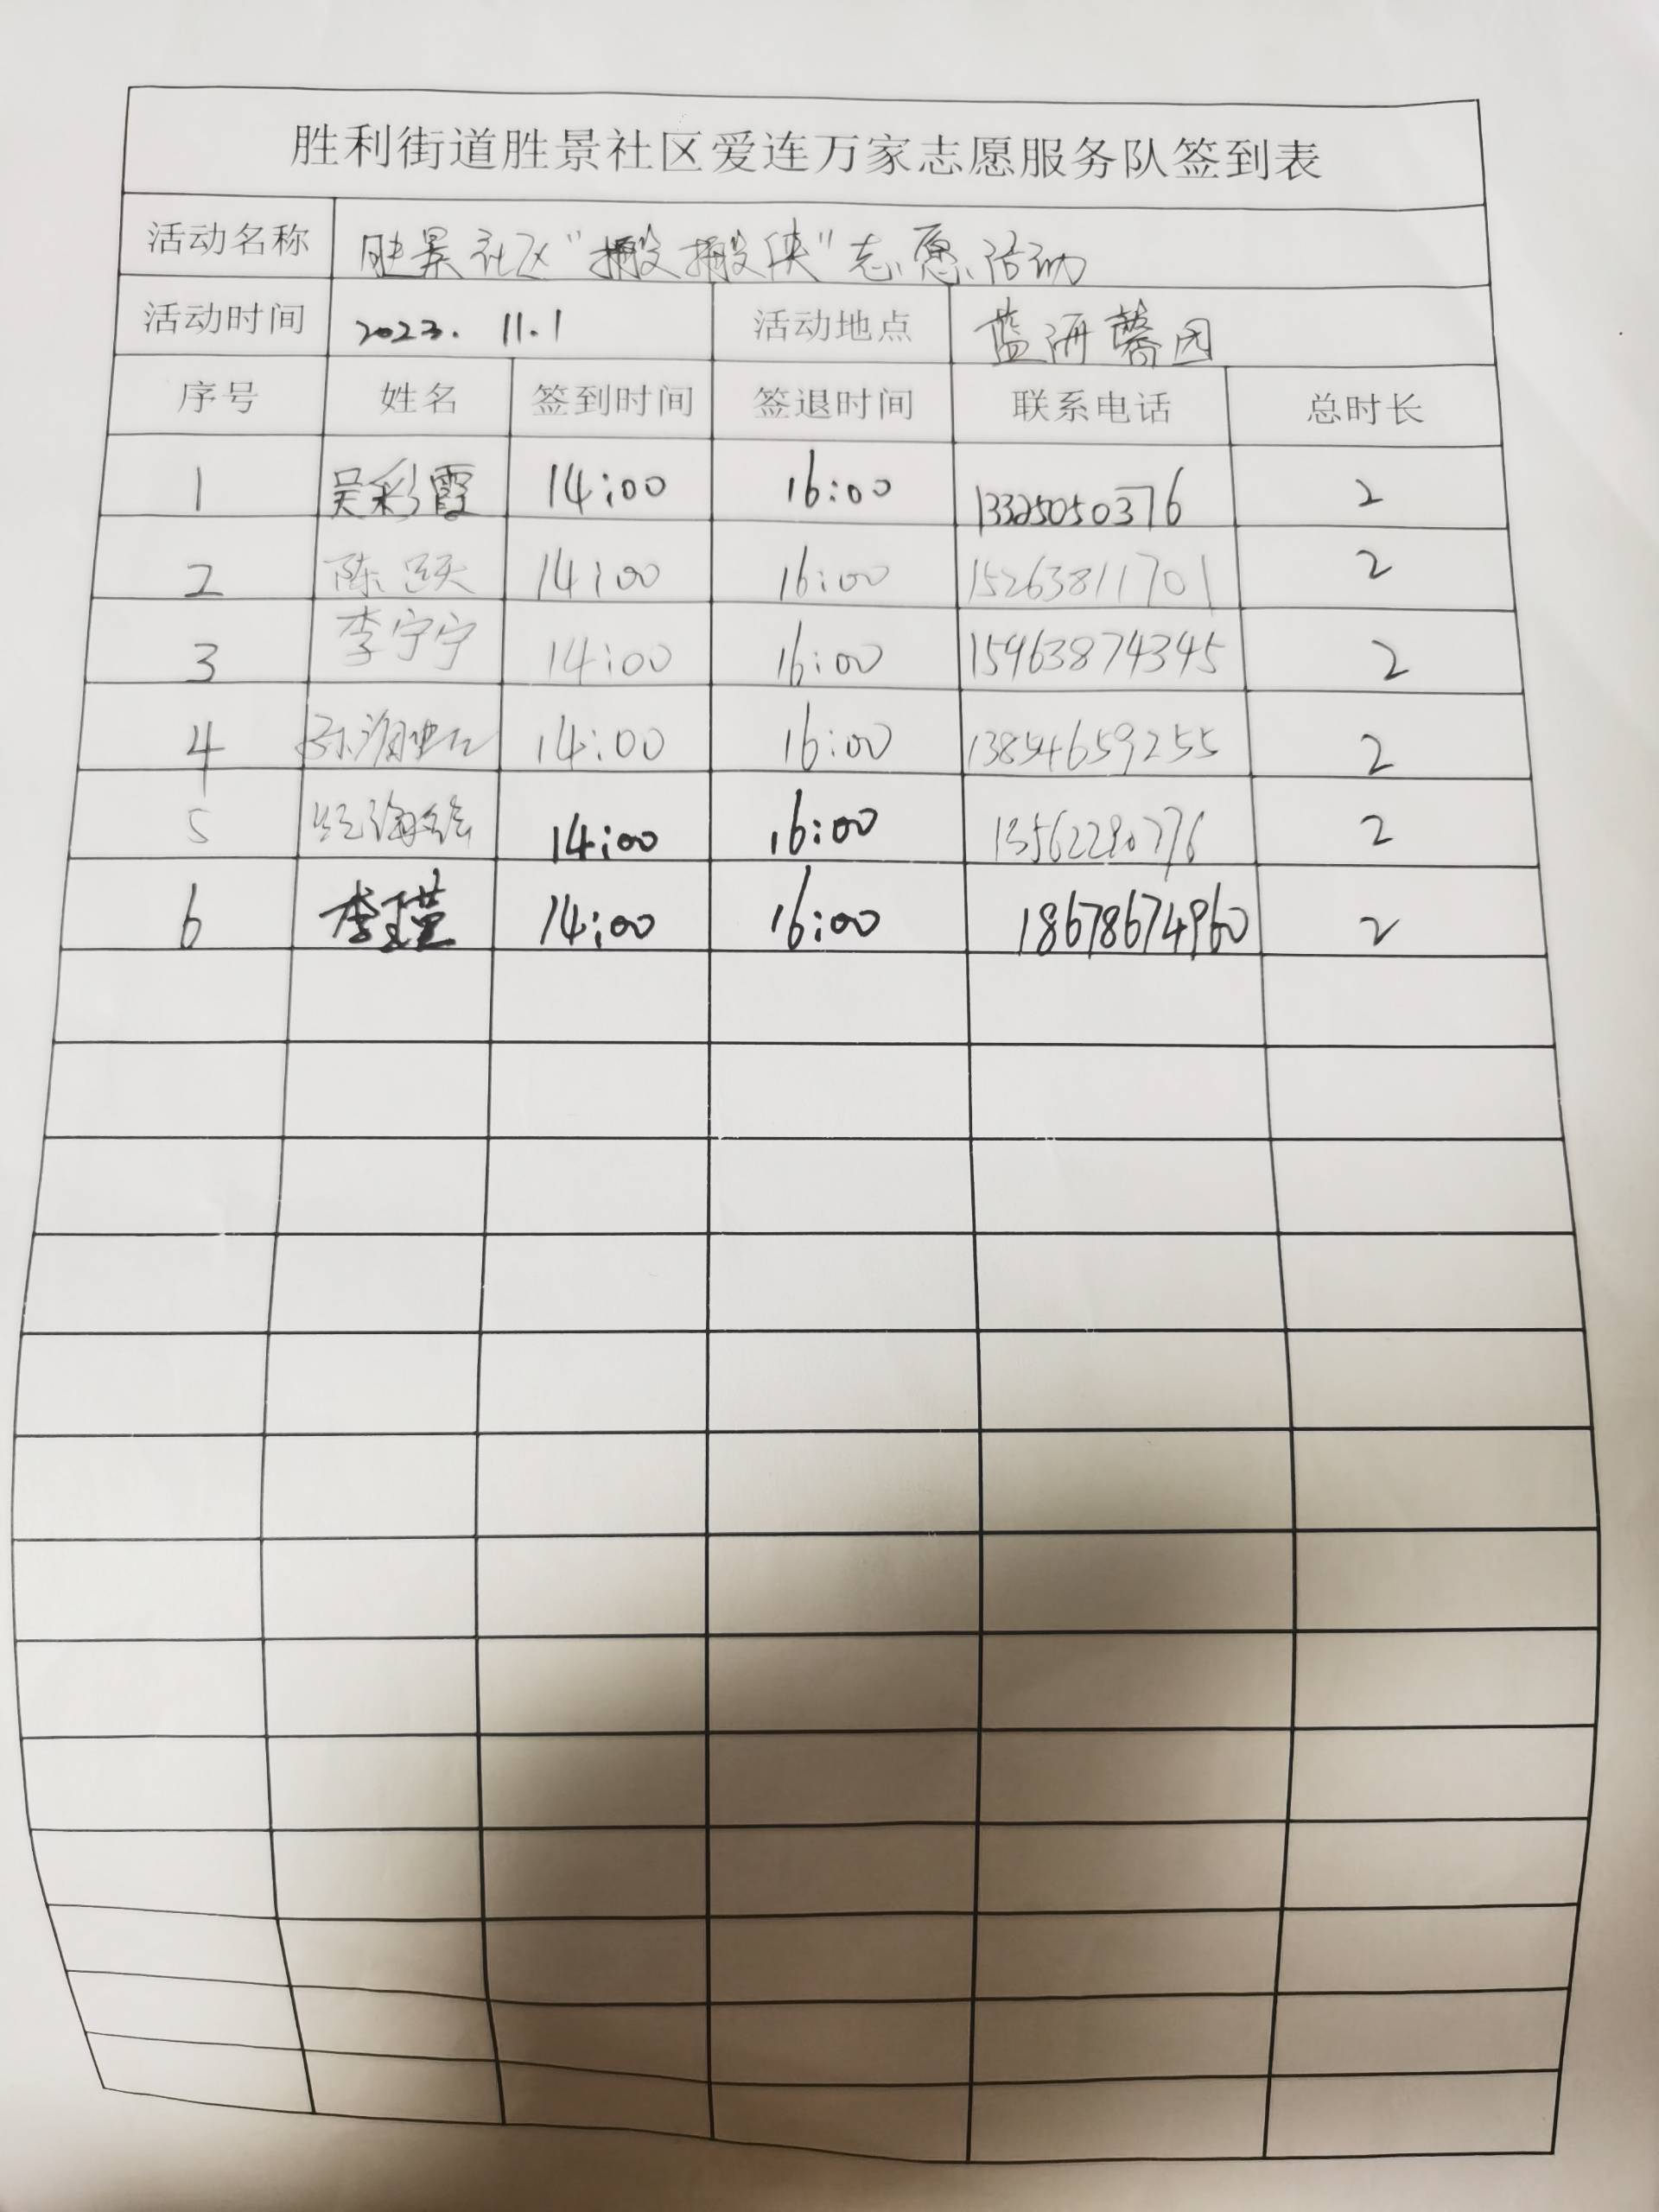 胜利街道胜景社区爱连万家志愿服务队签到表
活动名称 胜景社区“搬搬侠”志愿活动
活动时间 2023. 11.1 活动地点 蓝海馨园
序号 姓名 签到时间 签退时间 联系电话 总时长
1 吴彩霞 14:00 16:00 13325050376 2
2 陈跃 14:00 16:00 15263811701 2
3 李宁宁 14:00 16:00 15963874345 2
4 14:00 16:00 13854659255 2
5 14:00 16:00 13562280776 2
6 李瑾 14:00 16:00 18678674960 2